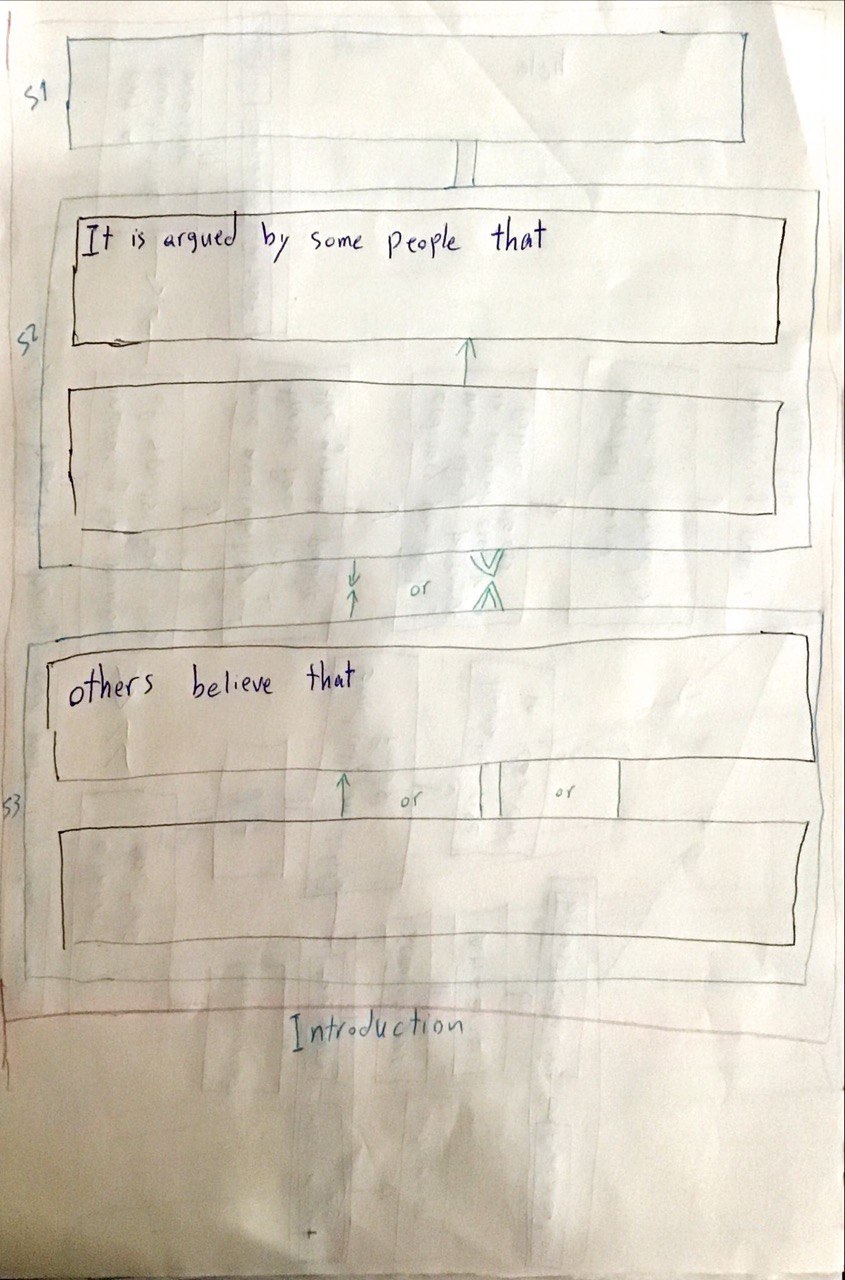 S1
It is argued by some people that
S2
or
others believe that
or or
S3
Introduction